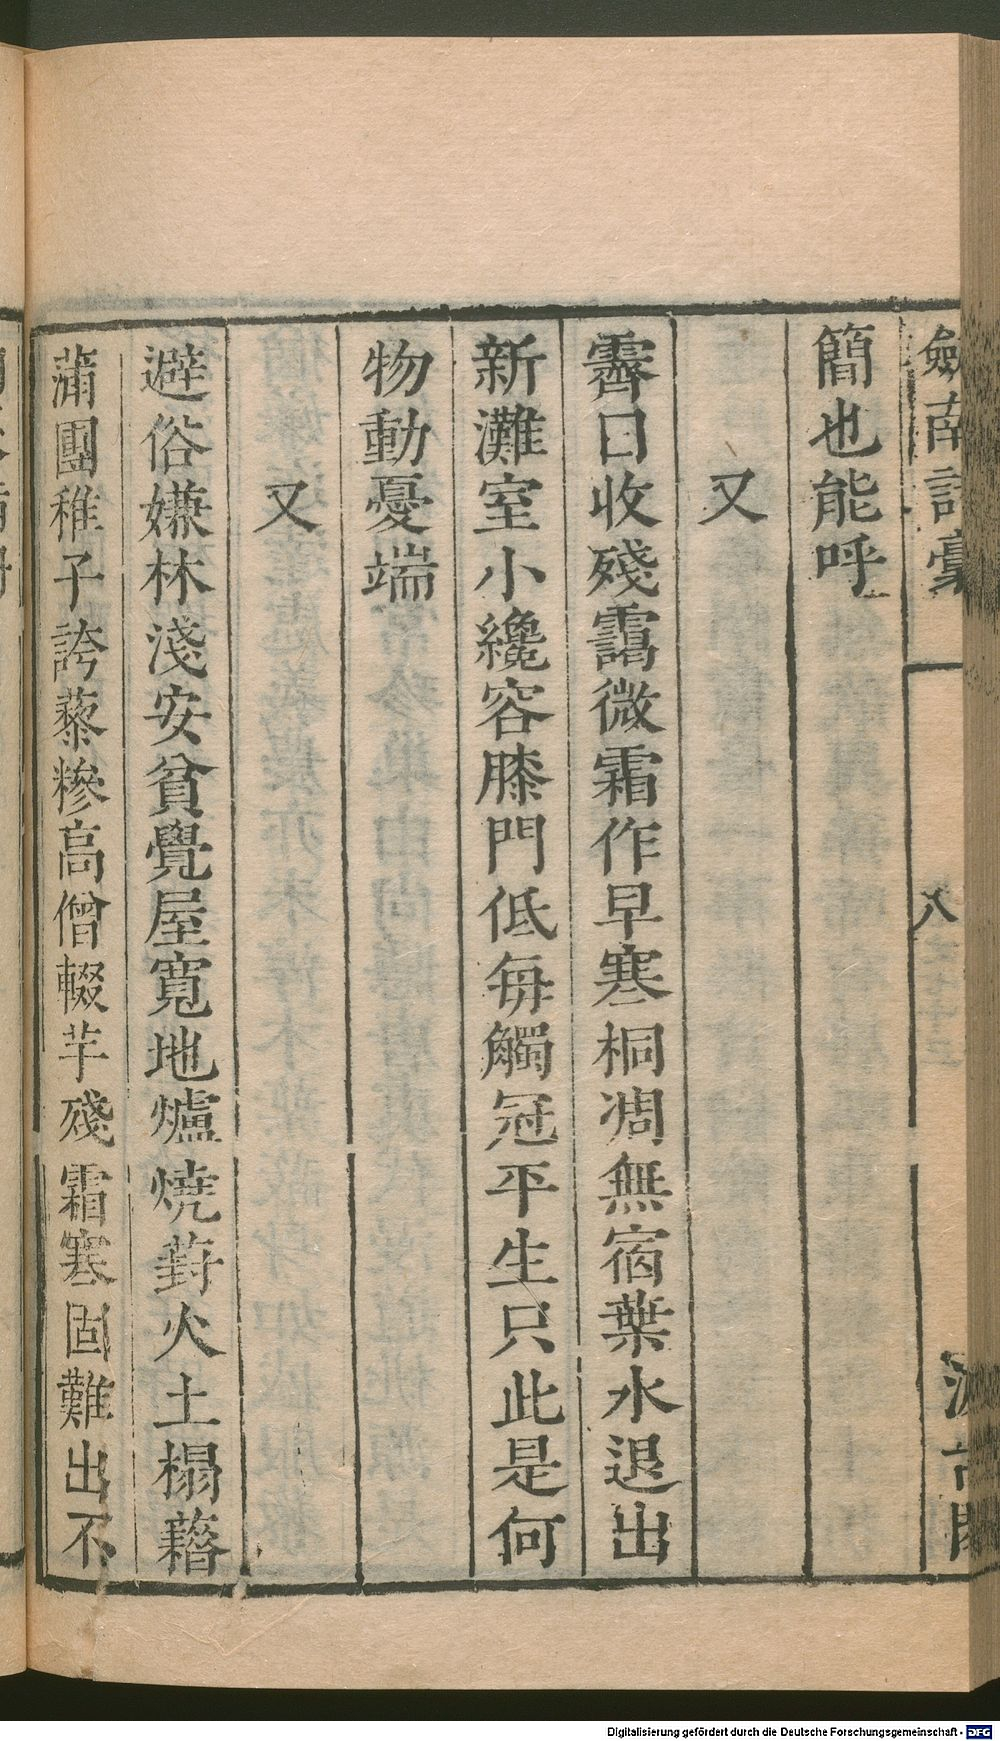 劍南詩稾
八
汲古閣
簡也能呼
又
霽日收殘靄微霜作早寒桐凋無宿葉水退出
新灘室小纔容膝門低每觸冠平生只此是何
物動憂端
又
避俗嫌林淺安貧覺屋寬地爐燒葑火土榻藉
蒲團稚子誇藜糝高僧輟芋殘霜寒固難出不
Digitalisierung gefördert durch die Deutsche Forschungsgemeinschaft - DFG